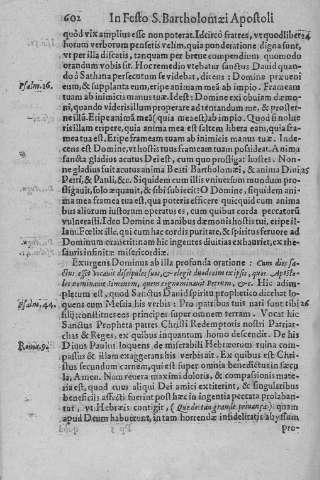 602 In Festo S. Bartholomæi Apostoli
quòd vix amplius esse non poterat. Idcirò fratres, vt quodlibet 24
horum verborum pensetis velim, quia ponderatione digna sunt,
vt per illa discatis, tanquam per breue compendium quomodo
orandum vobis sit. Hoc remedio vtebatur sanctus Dauid quan-
do à Sathana persecutum se videbat, dicens: Domine præueni
Psalm. 16. eum, & supplanta eum, eripe animam meā ab impio. Frameam
tuam ab inimicis manus tuæ. Id est: Domine exi obuiam dæmo-
ni, quando videris illum properare ad tentandum me, & proster-
ne illū. Eripe animā meā (quia mea est) ab impio. Quod si nolue
ris illam eripere, quia anima mea est saltem libera eam, quia fra-
mea tua est. Eripe frameam tuam ab inimicis manus tuæ. Inde-
cens est Domine, vt hostis tuus frameam tuam possideat. Anima
sancta gladius acutus Dei est, cum quo profligat hostes. Non-
ne gladius fuit acutus anima Beati Bartholomæi, & anima Diui 25
Petri, & Pauli, &c. Siquidem cum illis vniuersum mundum pro-
fligauit, solo æquauit, & sibi subiecit? O Domine, siquidem ani-
ma mea framea tua est, qua poteris efficere quicquid cum anima
bus aliorum iustorum operatus es, cum quibus corda peccatorū
vulnerasti. Ideo Domine à manibus dæmonis hostis tui, eripe il-
lam. Fœlix ille, qui cum hac cordis puritate, & spiritus feruore ad
Dominum exauctitnam hic ingentes diuitias exhauriet, ex the-
sauris infinitæ misericordiæ.
Exurgens Dominus ab illa profunda oratione: Cum dies fa-
ctus esset vocauit discipulos suos, & elegit duodecim ex ipsis, quos Aposto-
los nominauit Simonem, quem cognominauit Petrum, &c. Hic adim-
pletum est, quod Sanctus Dauid spiritu prophetico dixerat lo-
Psalm. 44. quens cum Messia his verbis: Pro patribus tuis nati sunt tibi 26
filij: constitues eos principes super omnem terram. Vocat hic
Sanctus Propheta patres Christi Redemptoris nostri Patriar-
chas & Reges, ex quibus inquantum homo descendit. De his
Rom. 9. Diuus Paulus loquens, de miserabili Hebræorum ruina com-
passus & illam exaggerans his verbis ait. Ex quibus est Chri-
stus secundum carnem, qui est super omnia benedictus in sæcu
la, Amen. Nam reuera maximi doloris, & compassionis mate-
ria est, quod cum aliqui Dei amici extiterint, & singularibus
beneficijs affecti fuerint post hæc in ingentia peccata prolaban-
tur, vt Hebræis contigit, quam
apud Deum habuerunt, in tam horrendæ infidelitatis abyssum
pro-